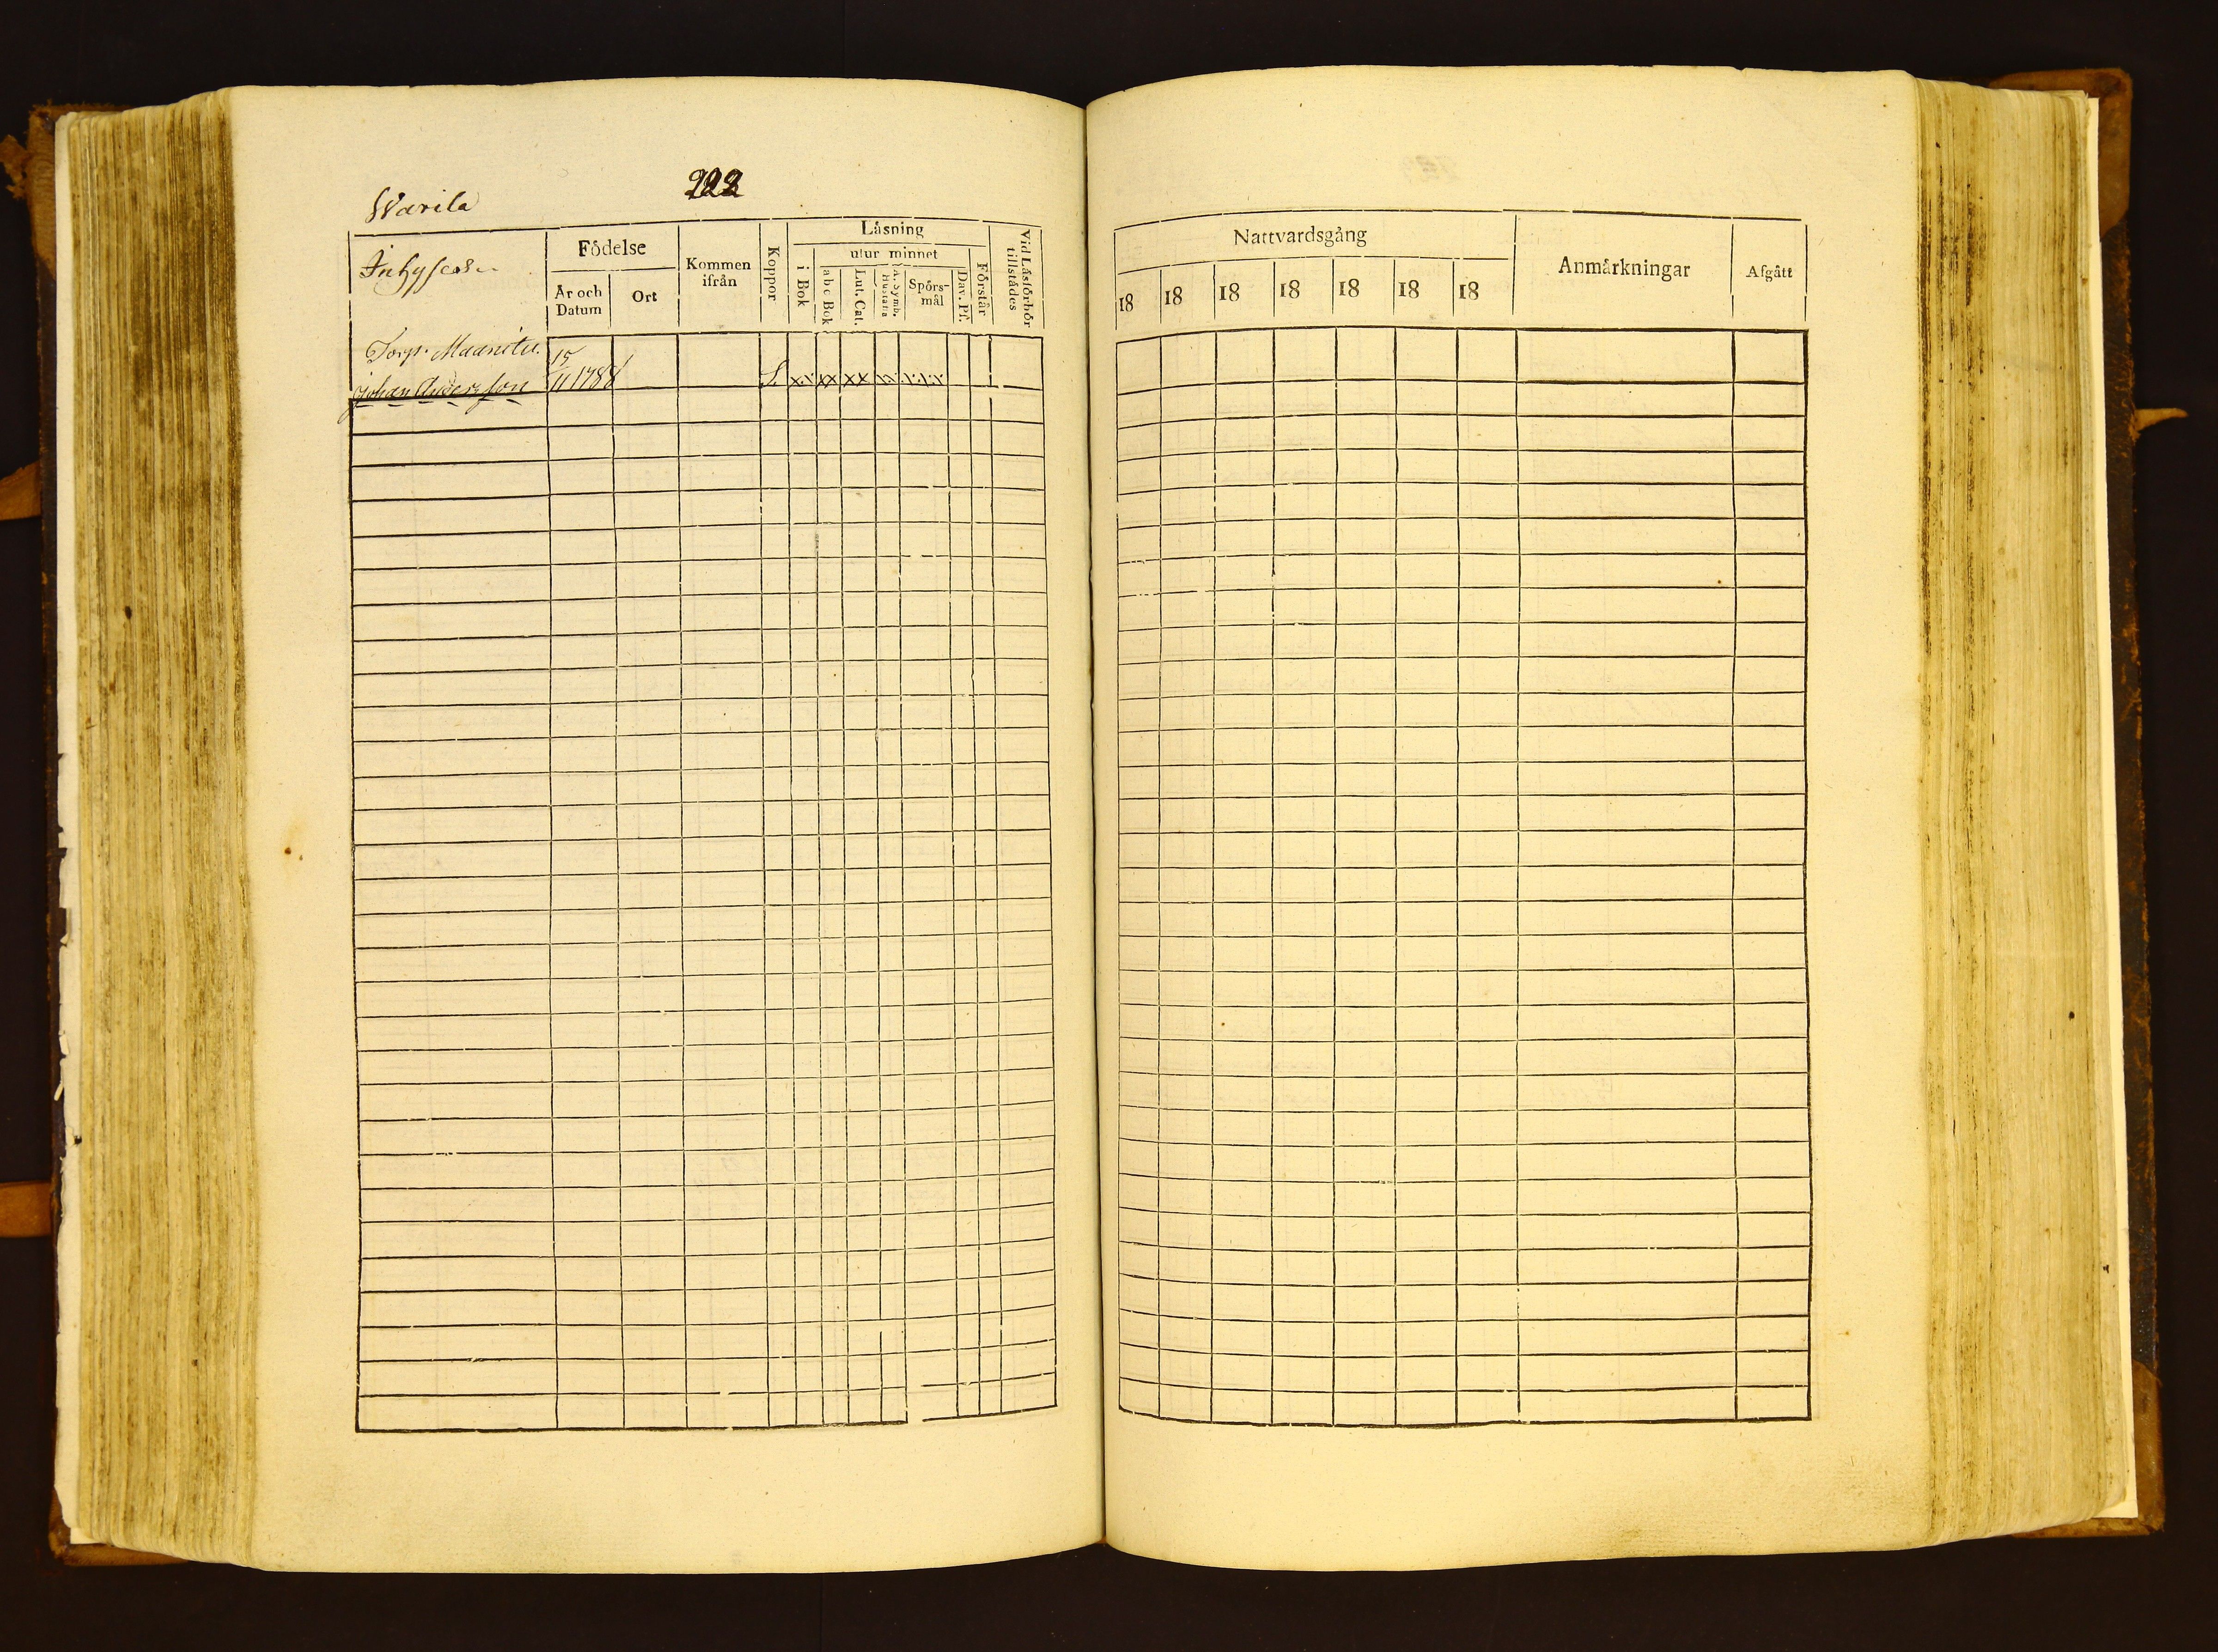 Warila
222
Inhyseshn
Födelse
År och Datum
Ort
Kommen ifrån
Koppor
Läsning
i Bok
utur minnet
abc Bok
Lut. Cat.
A. Symb. Hustafla
Spörs-mål
Dav. Ps.
Förstår
Vid Läsförhör tillstädes
Torp. Maanitu.
Johan Andersson 15/11 1788 S. x.. xx xx
Nattvardsgång
18 18 18 18 18 18 18
Anmärkningar
Afgått